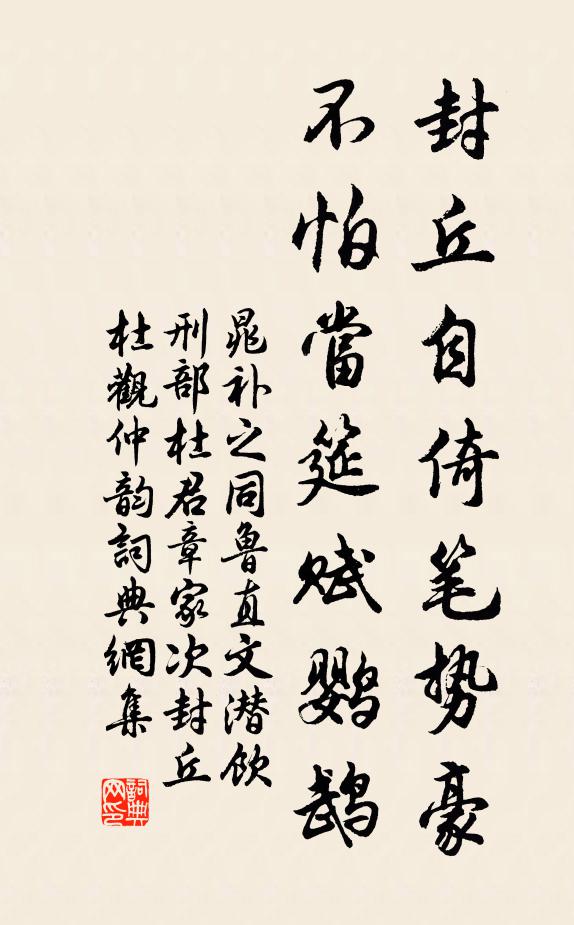 封丘自倚笔势豪
不怕當筵赋鹦鹉
晁补之同鲁直文潜饮
刑部杜君章家次封丘
杜觀仲韵詞典網集
詞典网印